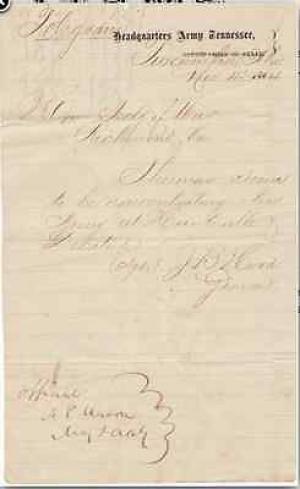 Telegram
Headquarters Army Tennessee,
Tuscumbia, Ala
Nov 12 1864
Hon Secty of War
Richmond, Va
Sherman seems
to be concentrating
Army at Huntsville &
Decatur
(Sgd) J B Hood
General
Official
A. P. Mason
Maj & AAG